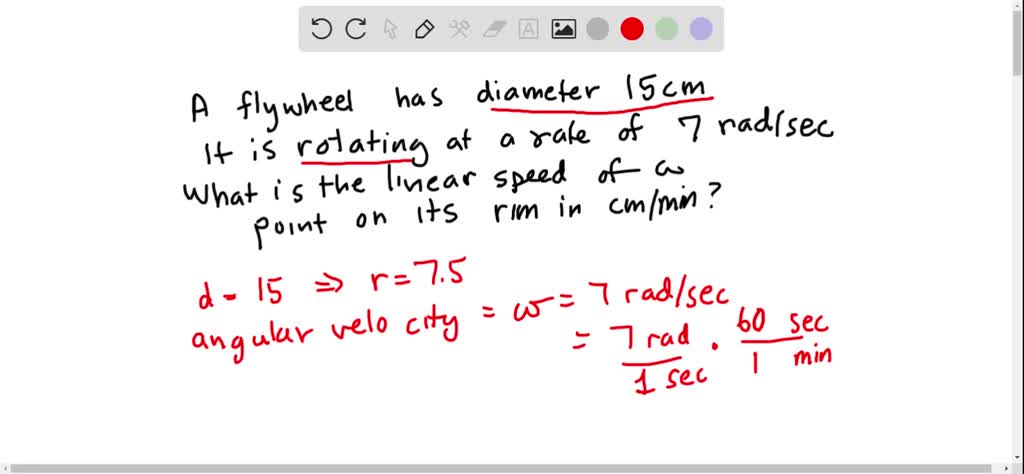 A flywheel has diameter 15cm
It is rotating at a rate of 7 rad/sec
What is the linear speed of a
point on its rim in cm/min?
d = 15 ⇒ r = 7.5
angular velocity = ω = 7 rad/sec
= 7 rad / 1 sec · 60 sec / 1 min